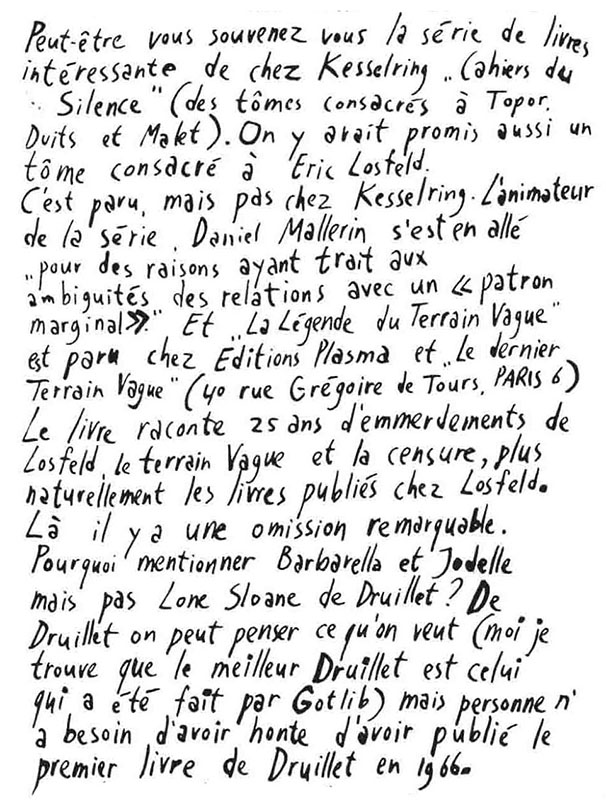 Peut-être vous souvenez vous la série de livres
intéressante de chez Kesselring „Cahiers du
Silence" (des tômes consacrés à Topor,
Duits et Makt). On y avait promis aussi un
tôme consacré à Eric Losfeld.
C'est paru, mais pas chez Kesselring. L'animateur
de la série, Daniel Mallerin s'est en allé
„pour des raisons ayant trait aux
ambiguités des relations avec un « patron
marginal»." Et „La Légende du Terrain Vague"
est paru chez Editions Plasma et „Le dernier
Terrain Vague" (40 rue Grégoire de Tours, PARIS 6)
Le livre raconte 25 ans d'emmerdements de
Losfeld, le terrain Vague et la censure, plus
naturellement les livres publiés chez Losfeld.
Là il y a une omission remarquable.
Pourquoi mentionner Barbarella et Jodelle
mais pas Lone Sloane de Druillet? De
Druillet on peut penser ce qu'on veut (moi je
trouve que le meilleur Druillet est celui
qui a été fait par Gotlib) mais personne n'
a besoin d'avoir honte d'avoir publié le
premier livre de Druillet en 1966.